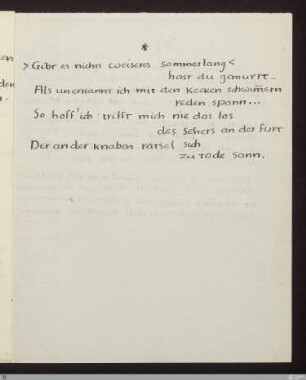 *
>Gibt es nichts weiseres sommerlang<
hast du gemurrt..
Als unerkannt ich mit den kecken schwimmern
reden spann...
So hoff' ich trifft mich nie das los
des sehers an der furt
Der an der knaben rätsel sich
zu tode sann.